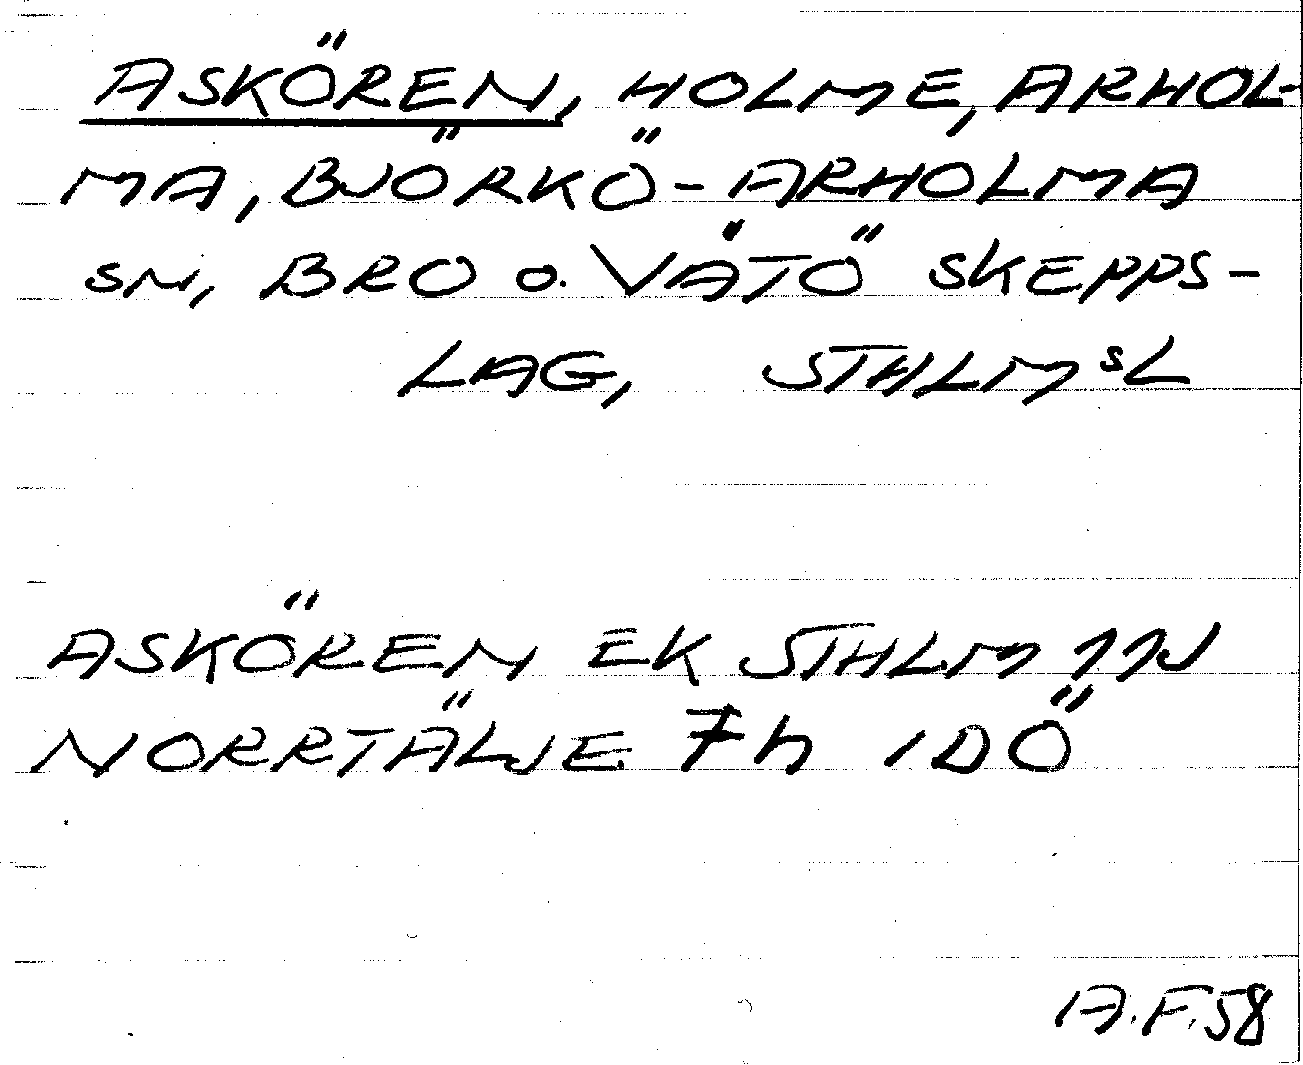 ASKÖREN, HOLME, ARHOL-
MA, BJÖRKÖ-ARHOLMA
SN, BRO o. VÄTÖ SKEPPS-
LAG, STHLMSL
ASKÖREN EK STHLM 11J
NORRTÄLJE 7h IDÖ
A.F.58